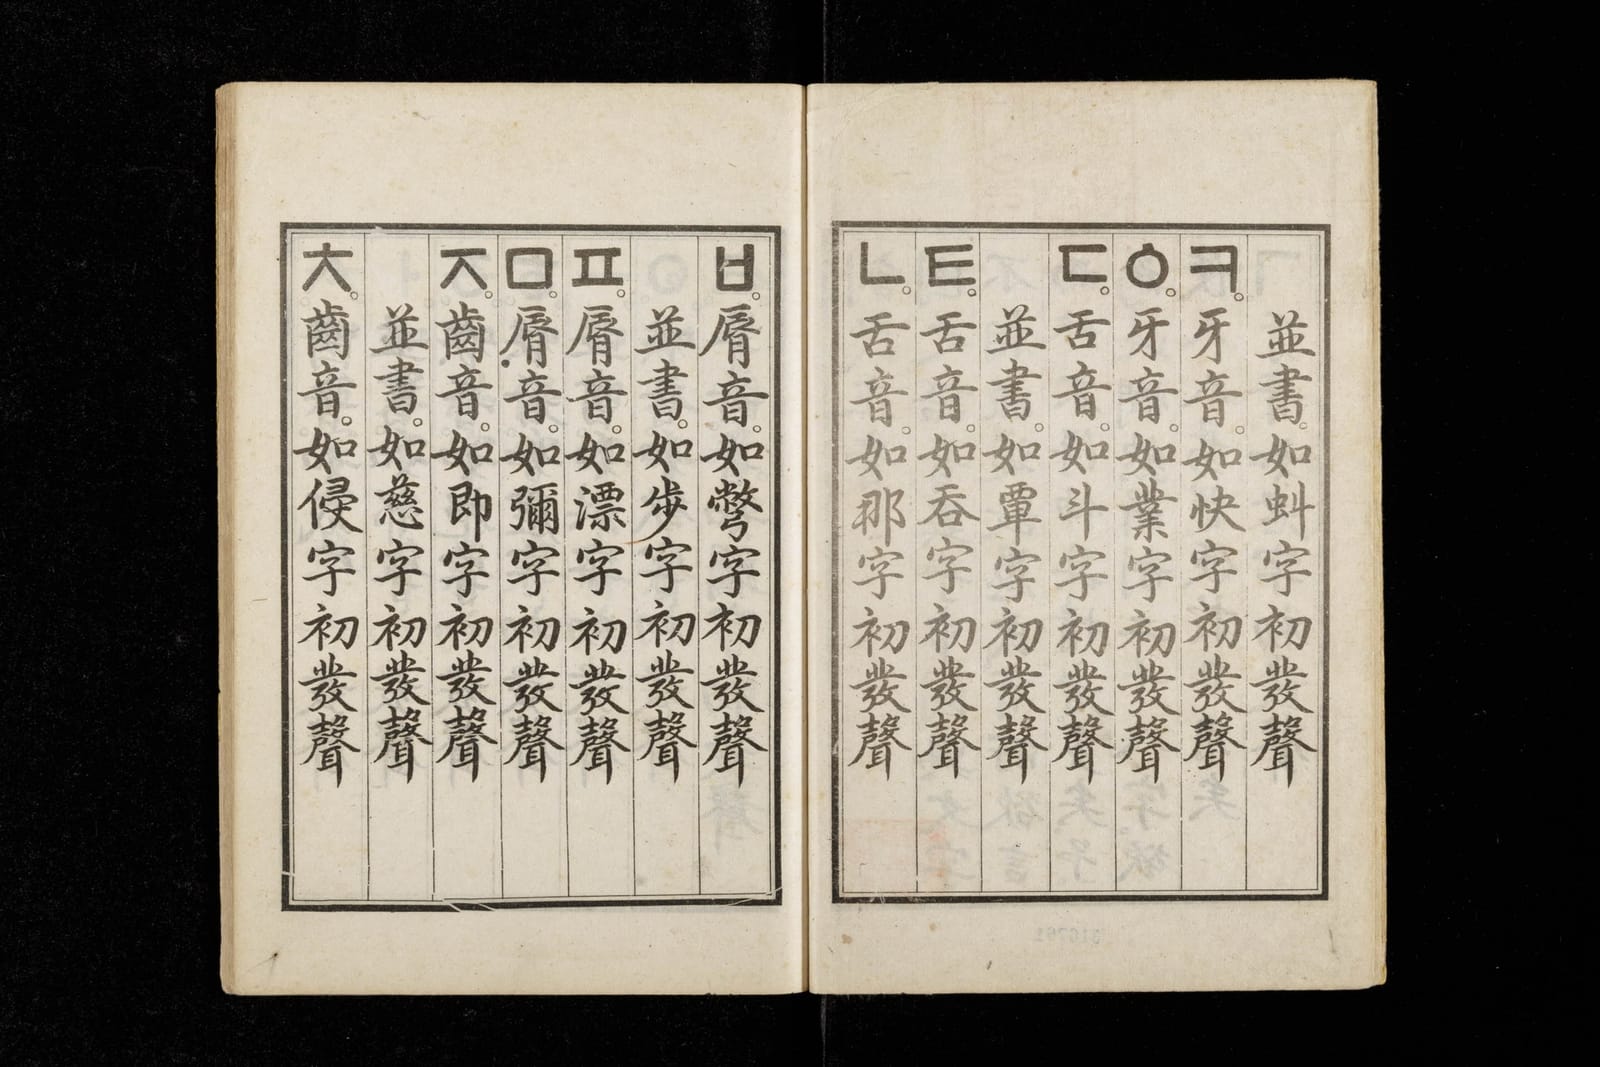 並書。如蚪字初發聲
ㅋ。牙音。如快字初發聲
ㆁ。牙音。如業字初發聲
ㄷ。舌音。如斗字初發聲
並書。如覃字初發聲
ㅌ。舌音。如呑字初發聲
ㄴ。舌音。如那字初發聲
ㅂ。脣音。如彆字初發聲
並書。如步字初發聲
ㅍ。脣音。如漂字初發聲
ㅁ。脣音。如彌字初發聲
ㅈ。齒音。如即字初發聲
並書。如慈字初發聲
ㅊ。齒音。如侵字初發聲